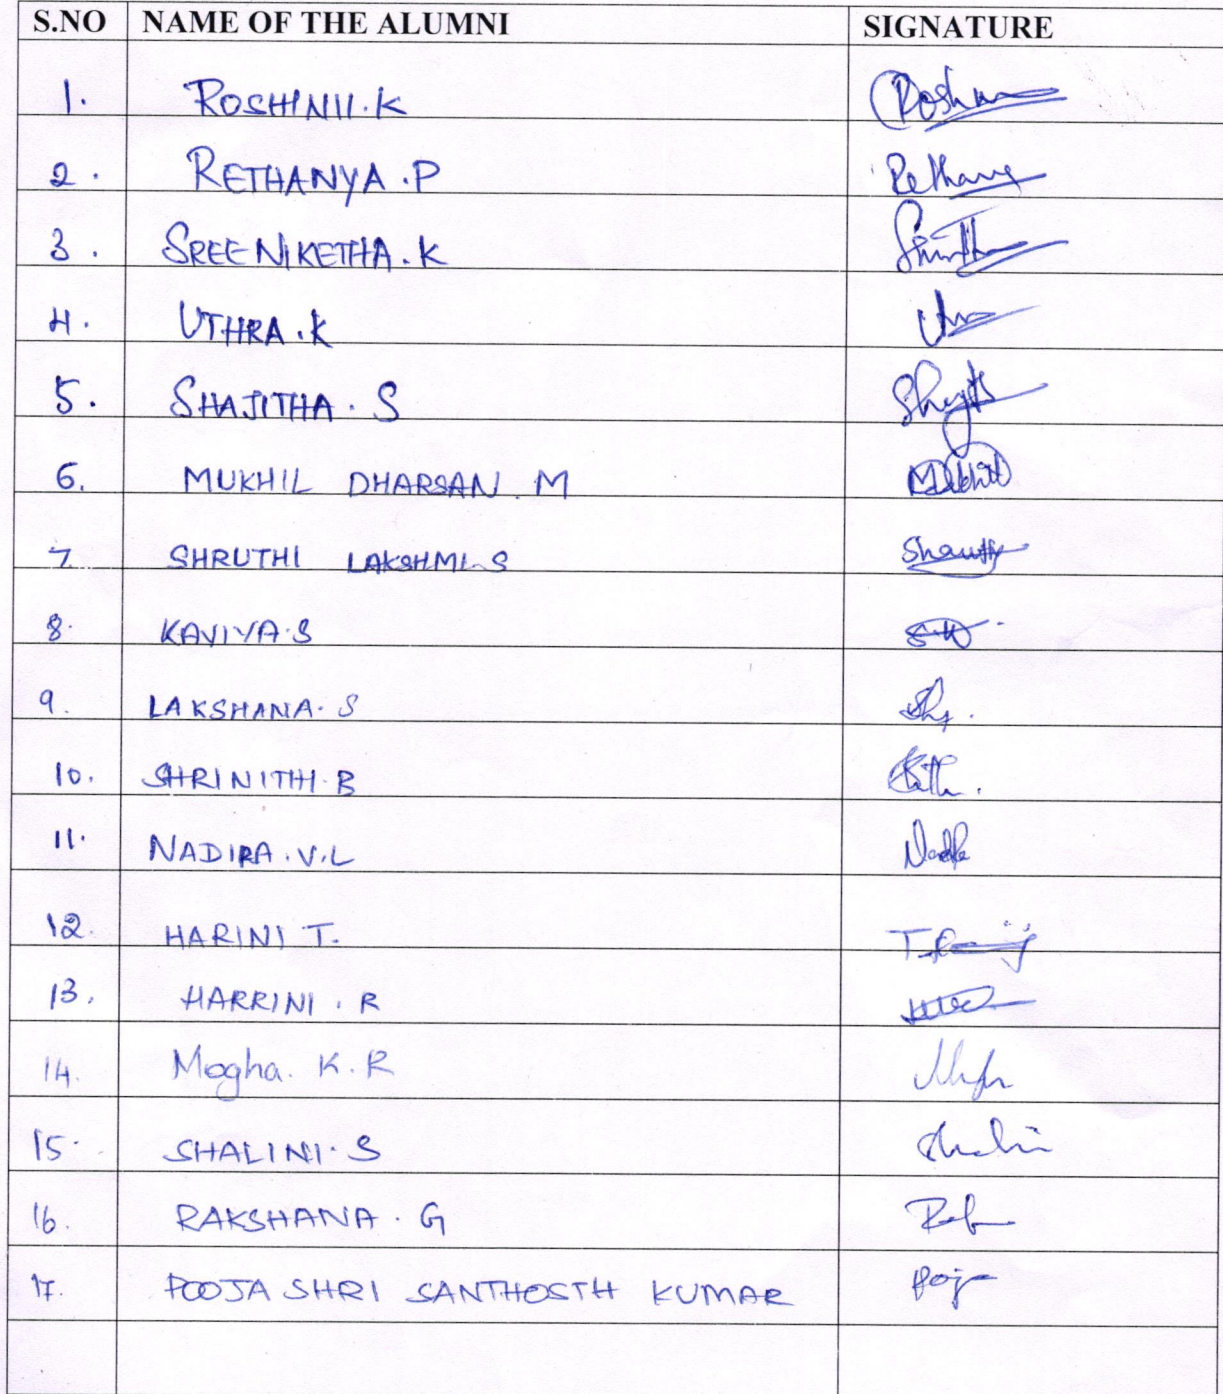 S.NO NAME OF THE ALUMNI SIGNATURE
1. ROSHINII.K Roshan
2. RETHANYA.P Rethany
3. SREENIKETHA.K
4. UTHRA.K
5. SHAJITHA.S
6. MUKHIL DHARSAN.M Mukhil
7. SHRUTHI LAKSHMI.S
8. KAVIYA.S
9. LAKSHANA.S
10. SHRINITHI.B
11. NADIRA.V.L
12. HARINI T.
13. HARRINI.R
14. Mogha.K.R
15. SHALINI.S
16. RAKSHANA.G
17. POOJA SHRI SANTHOSTH KUMAR Pooja